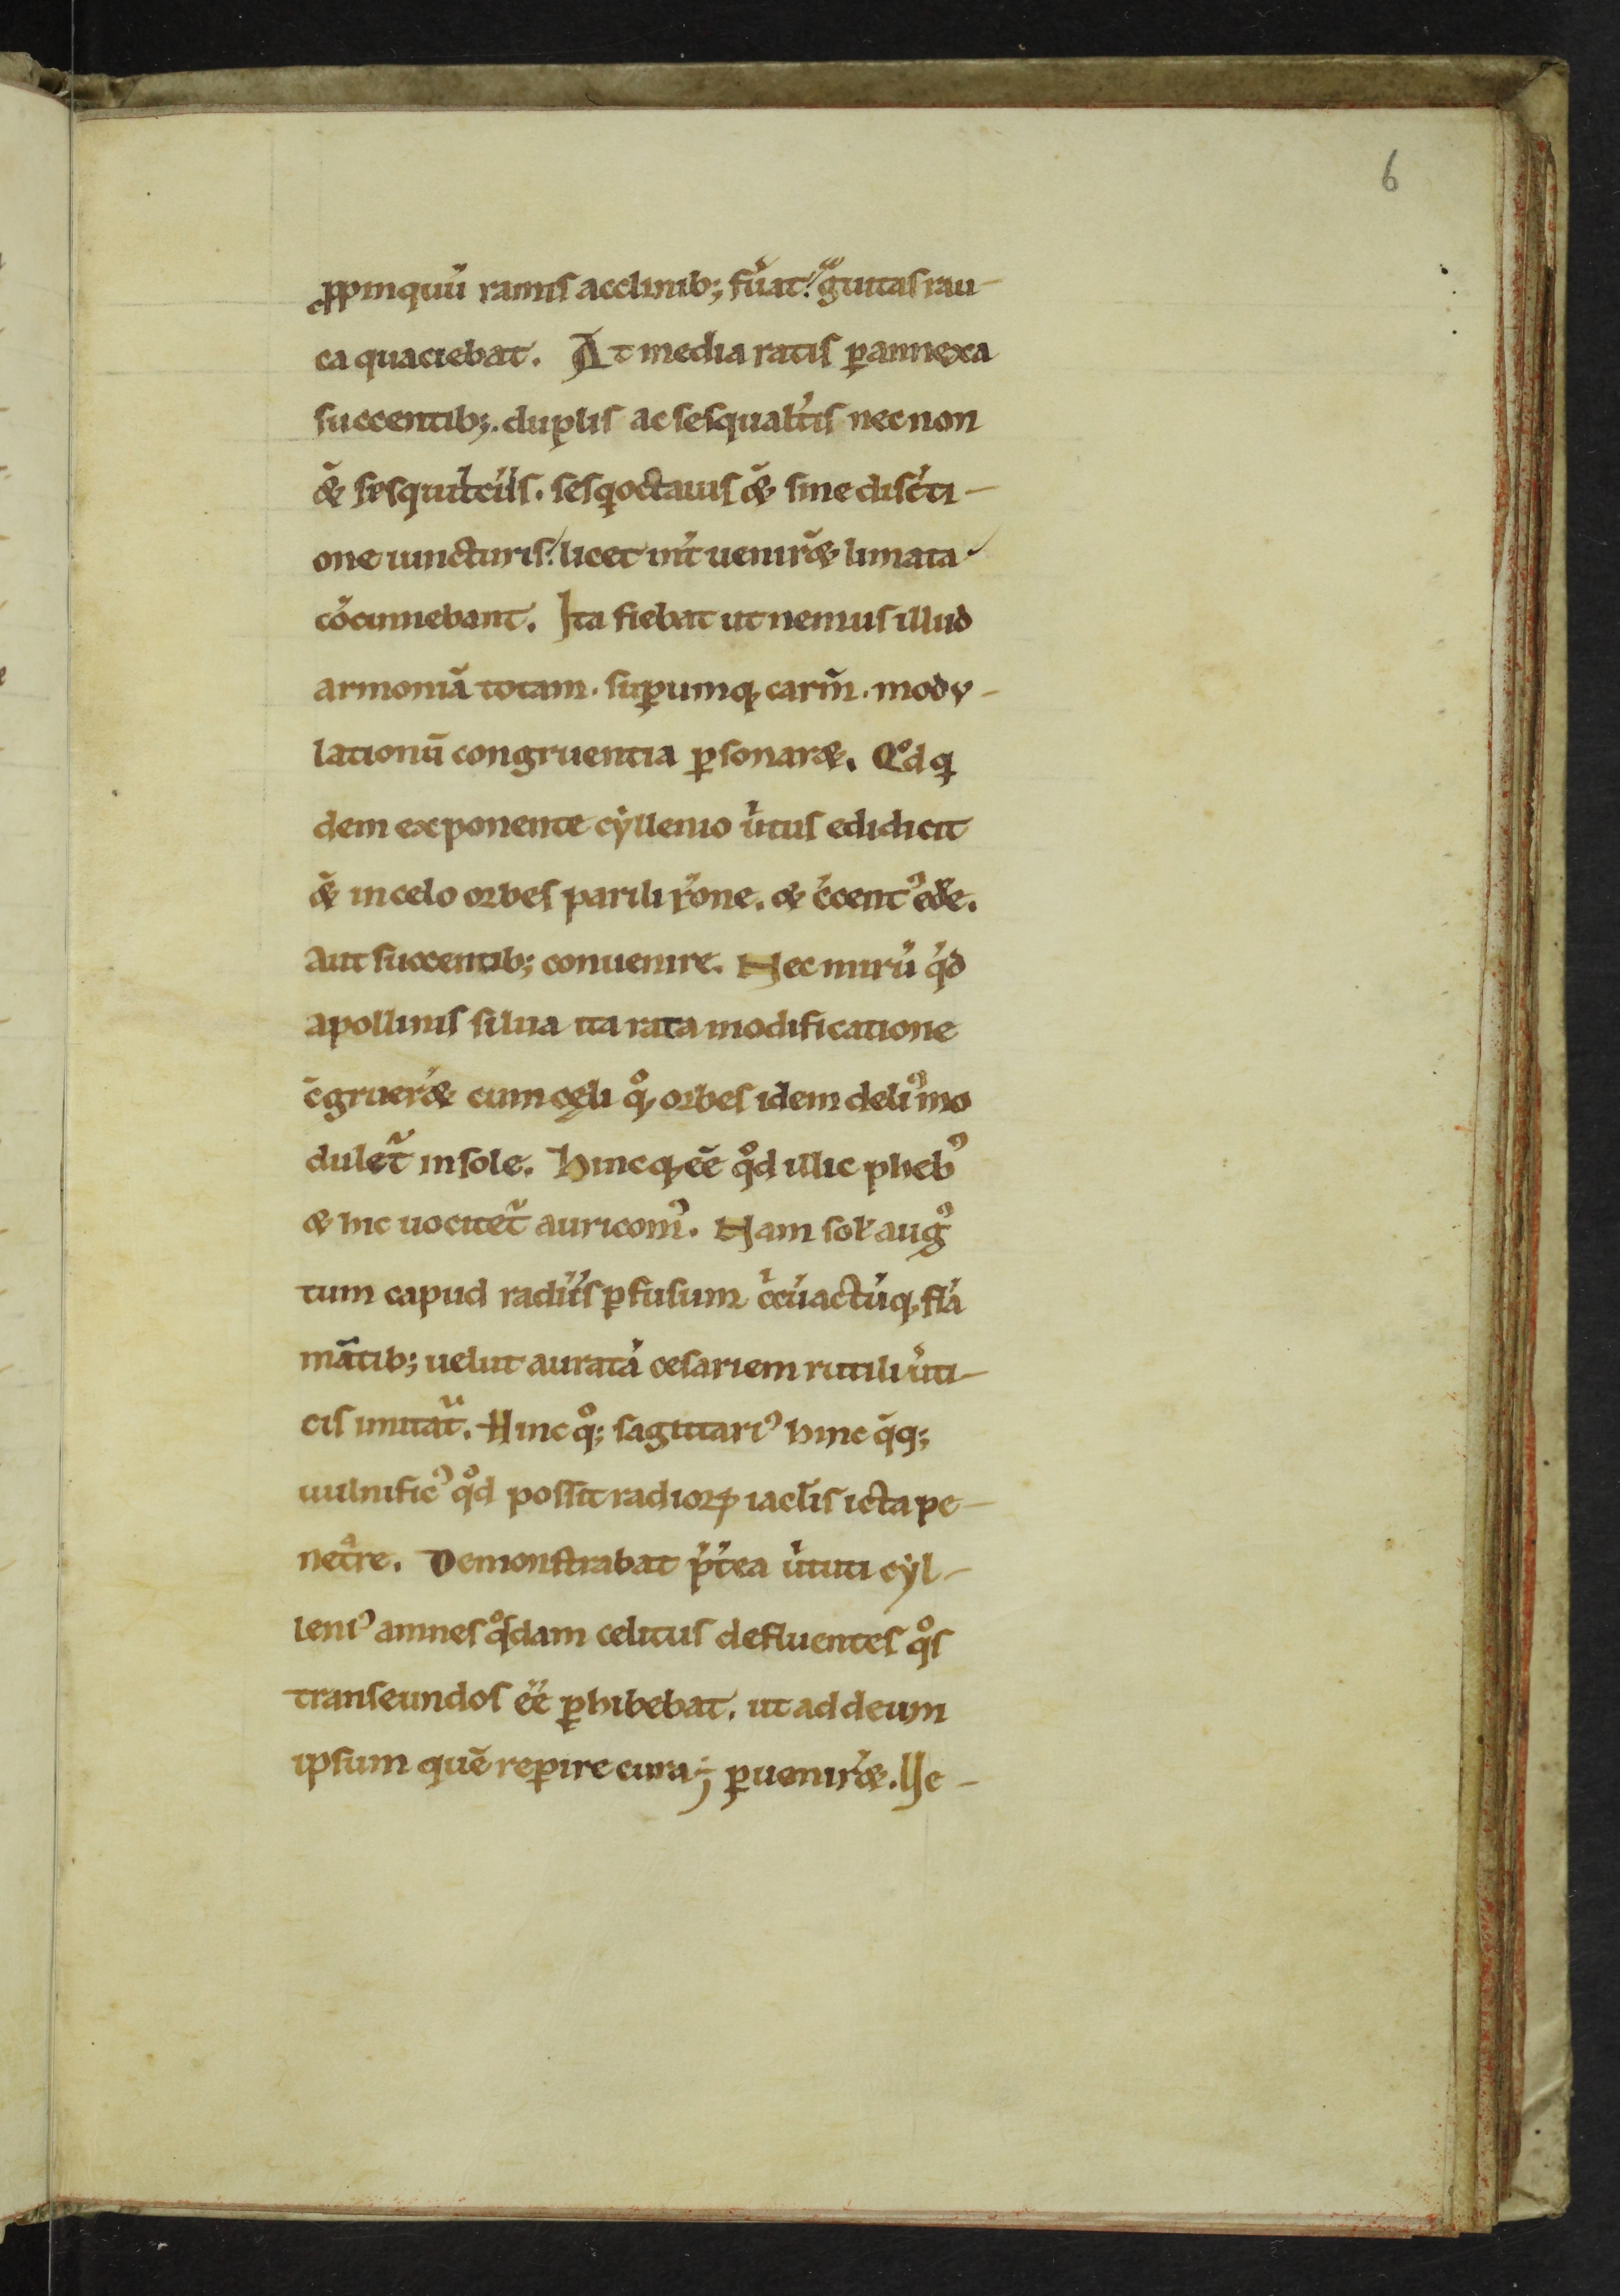 6
ꝓpinquū ramis acclinib; fuͦat. gͣuitas rau-
ca quatiebat. At media ratis ꝑ annexa
succentib; duplis ac sesqualtis nec non
& sesquitciis. sesqoctauis & sine discti-
one iuncturis. licet int uenirent limata
cōcinnebant. Ita fiebat ut nemus illud
armoniā totam. suꝑumq; carm̄. modu-
lationū congruentia ꝑsonaret. Qd qi
dem exponente cyllenio uͥtus edidicit
& in celo orbes parili rone. & ↄcent' edē.
Aut succentib; conuenire. Nec mirū qd
apollinis silua ita rata modificatione
ↄgrueret cum celi qͦq; orbes idem deli' mo
dulet̄ in sole. Hincq; eē qͦd illic pheb'
& hic uocitet̄ auricom'. Nam sol' aug'
tum capud radiis ꝑfusum cͥcūactūq; flā
mātib; uelut auratā cesariem rutili uͥti-
cis imitat̄. Hinc qͦq; sagittari' hinc qͦq;
uulnific' qͦd possit radioꝝ iaclis icta pe-
netͣre. Demonstrabat ptea uͥtuti cyl-
leni' amnes qͦsdam celitus defluentes qͦs
transeundos eē ꝑhibebat. ut ad deum
ipsum quē reꝑire cura; ꝑuenirent. Ue-